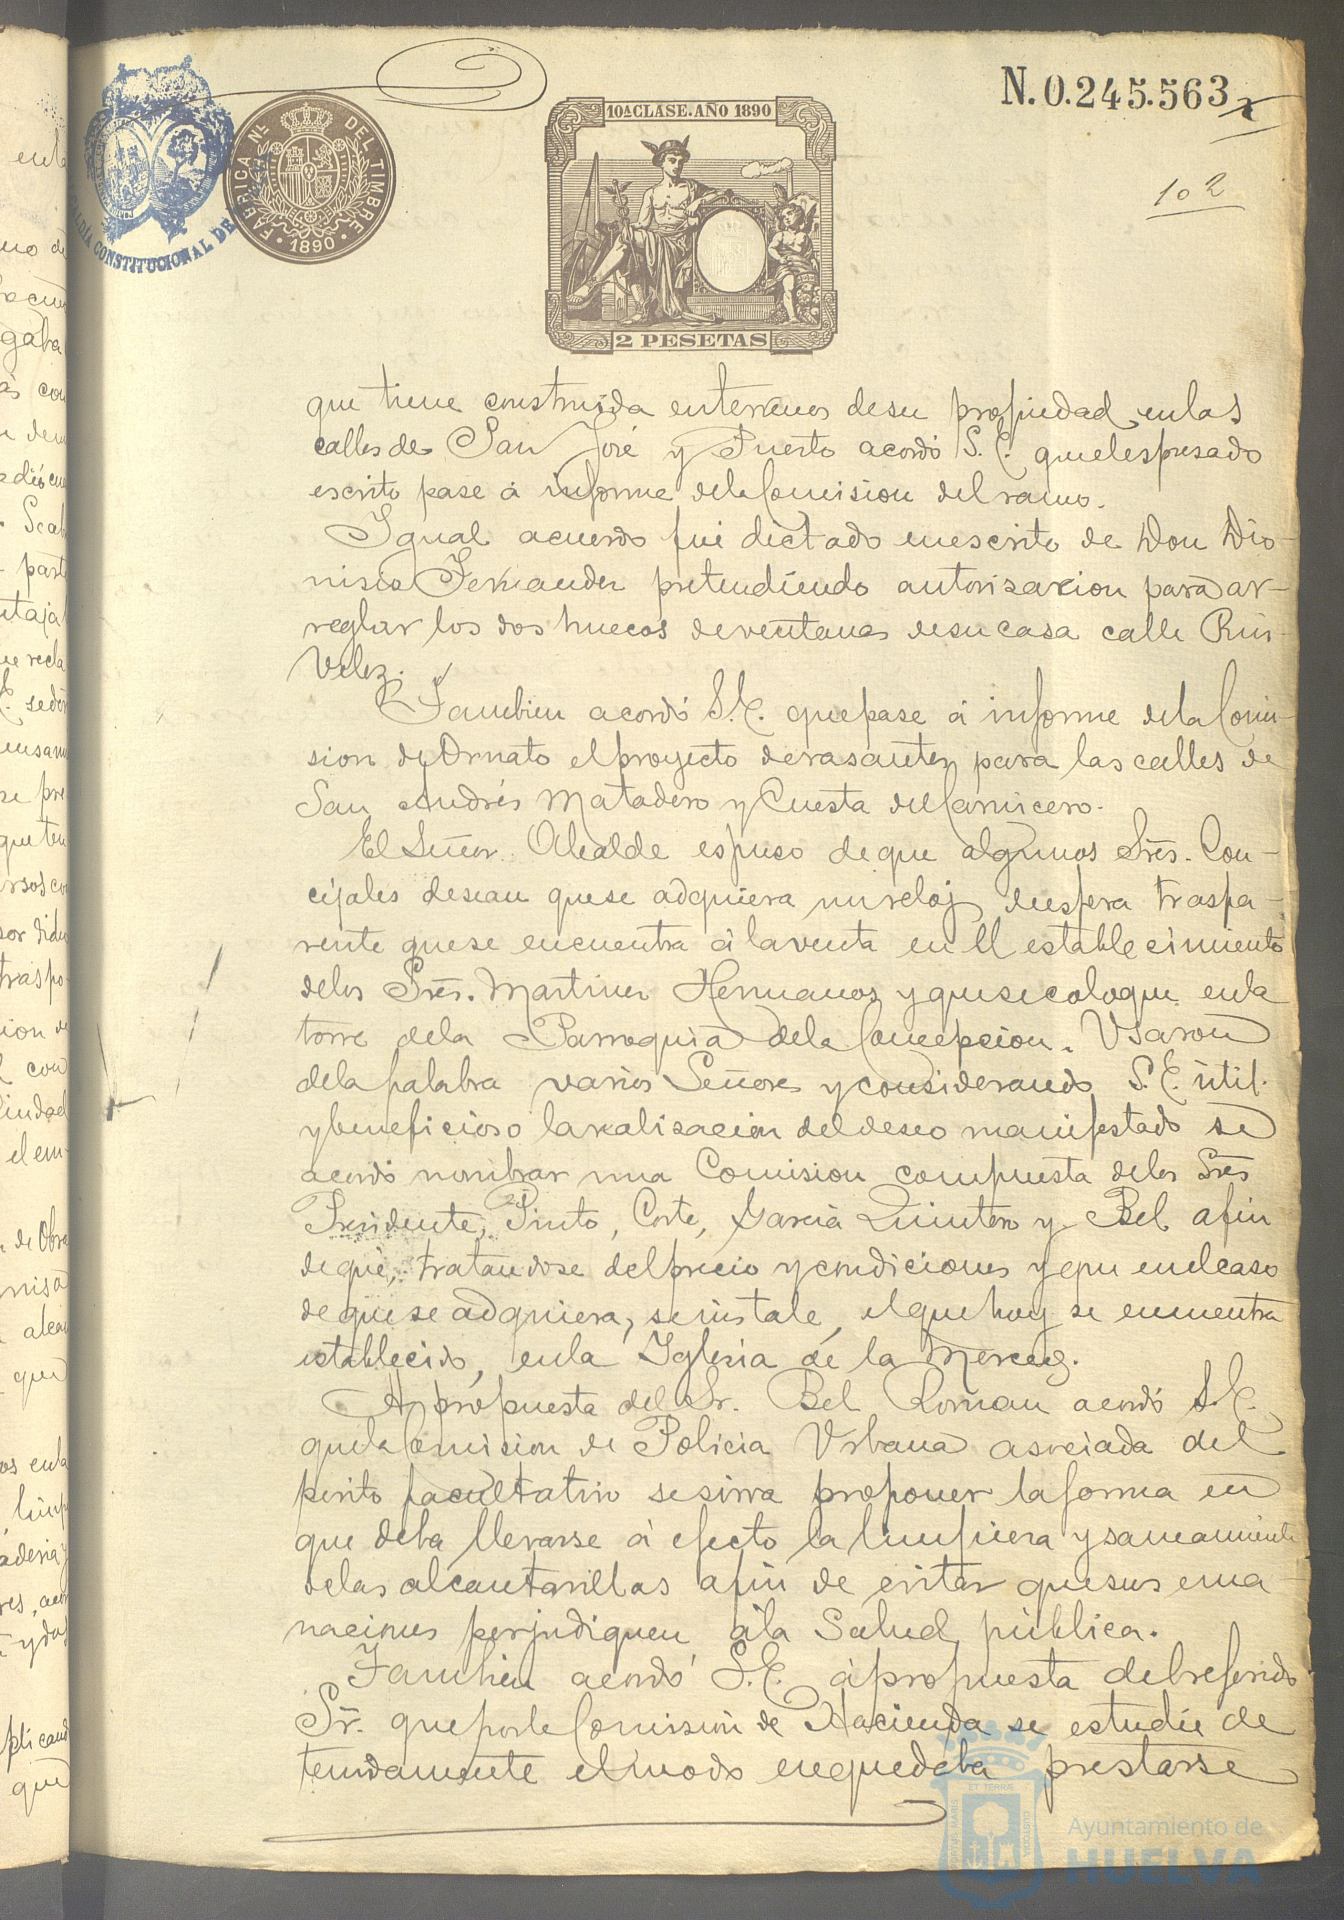 N. 0.245.563
102
10ª CLASE. AÑO 1890
FABRICA Nal. DEL TIMBRE
1890
ALCALDÍA CONSTITUCIONAL DE
2 PESETAS
que tiene construida enterrenos desu propiedad enlas
calles de San José y Puerto acordó S. E. que el espresado
escrito pase á informe dela Comision del ramo.
Igual acuerdo fué dictado enescrito de Don Dio-
nisio Fernandez pretendiendo autorisacion para ar-
reglar los dos huecos deventanas desu casa calle Rui-
Velez.
Tambien acordó S. E. quepase á informe dela Comi-
sion de Ornato el proyecto derasantes para las calles de
San Andrés Matadero y Cuesta del Carnicero.
El Señor Alcalde espuso deque algunos Sres. Con-
cejales desean quese adquiera un reloj de esfera traspa-
rente quese encuentra á laventa en el establecimiento
delos Sres. Martinez Hermanos y quesecoloque enla
torre dela Parroquia dela Concepcion. Usaron
dela palabra varios Señores y considerando S. E. útil
y beneficioso larealisacion del deseo manifestado se
acordó nombrar una Comision compuesta delos Sres
Presidente, Pinto, Corte, Garcia Quintero y Bel afin
deque, tratandose del precio y condiciones y que en elcaso
dequese adquiera, seinstale, elquehoy se encuentra
establecido, enla Iglesia de la Merced.
A propuesta del Sr. Bel Roman acordó S. E.
quela Comision de Policia Urbana asociada del
perito facultativo sesirva proponer laforma en
que deba llevarse á efecto la limpiera y saneamiento
delas alcantarillas afin de evitar quesus ema-
naciones perjudiquen ála Salud pública.
Tambien acordó S. E. ápropuesta delreferido
Sr. queporla Comision de Hacienda se estudie de
tenidamente elmodo enquedeba prestarse
Ayuntamiento de
HUELVA